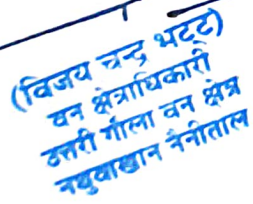 (विजय चन्द्र भटट)
वन क्षेत्राधिकारी
उत्तरी गौला वन क्षेत्र
नथुवाखान नैनीताल